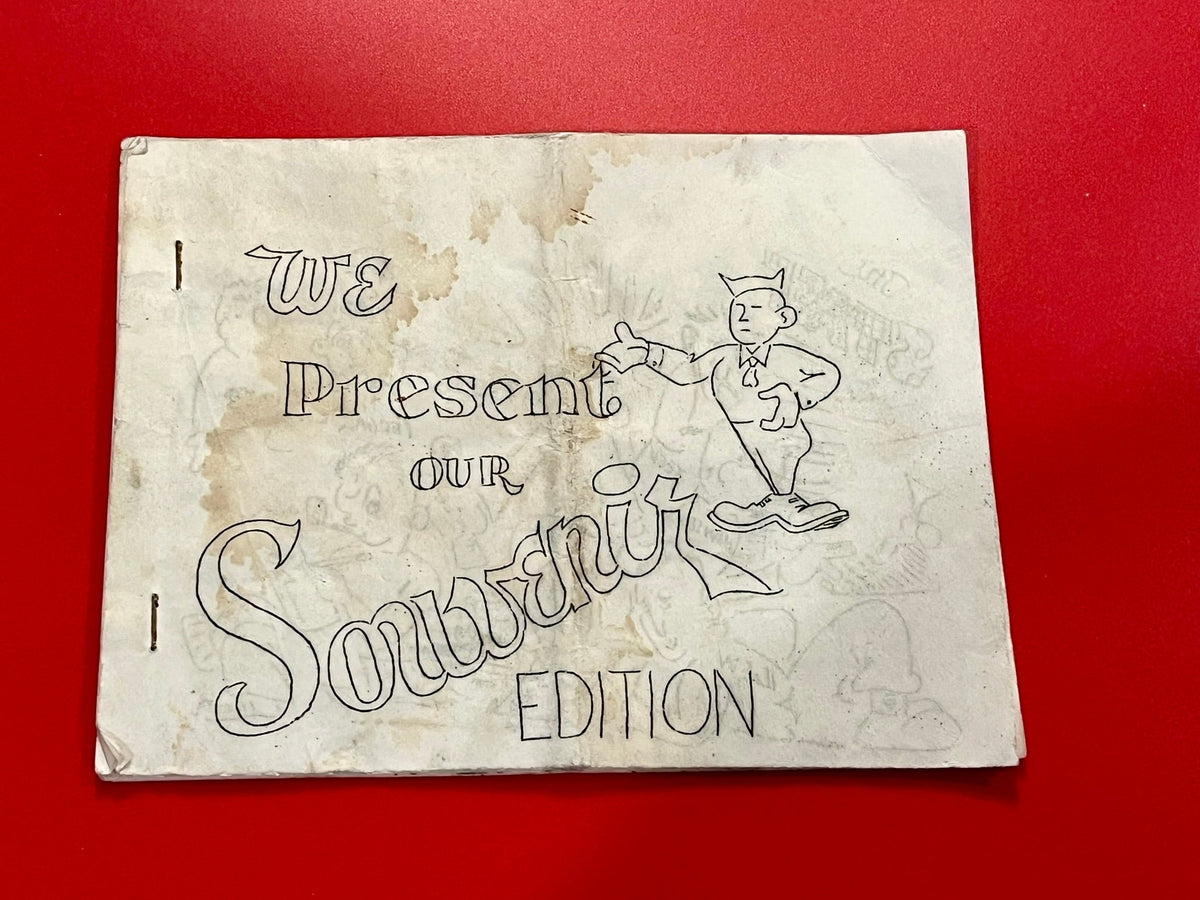 We
Present
OUR
Souvenir
EDITION